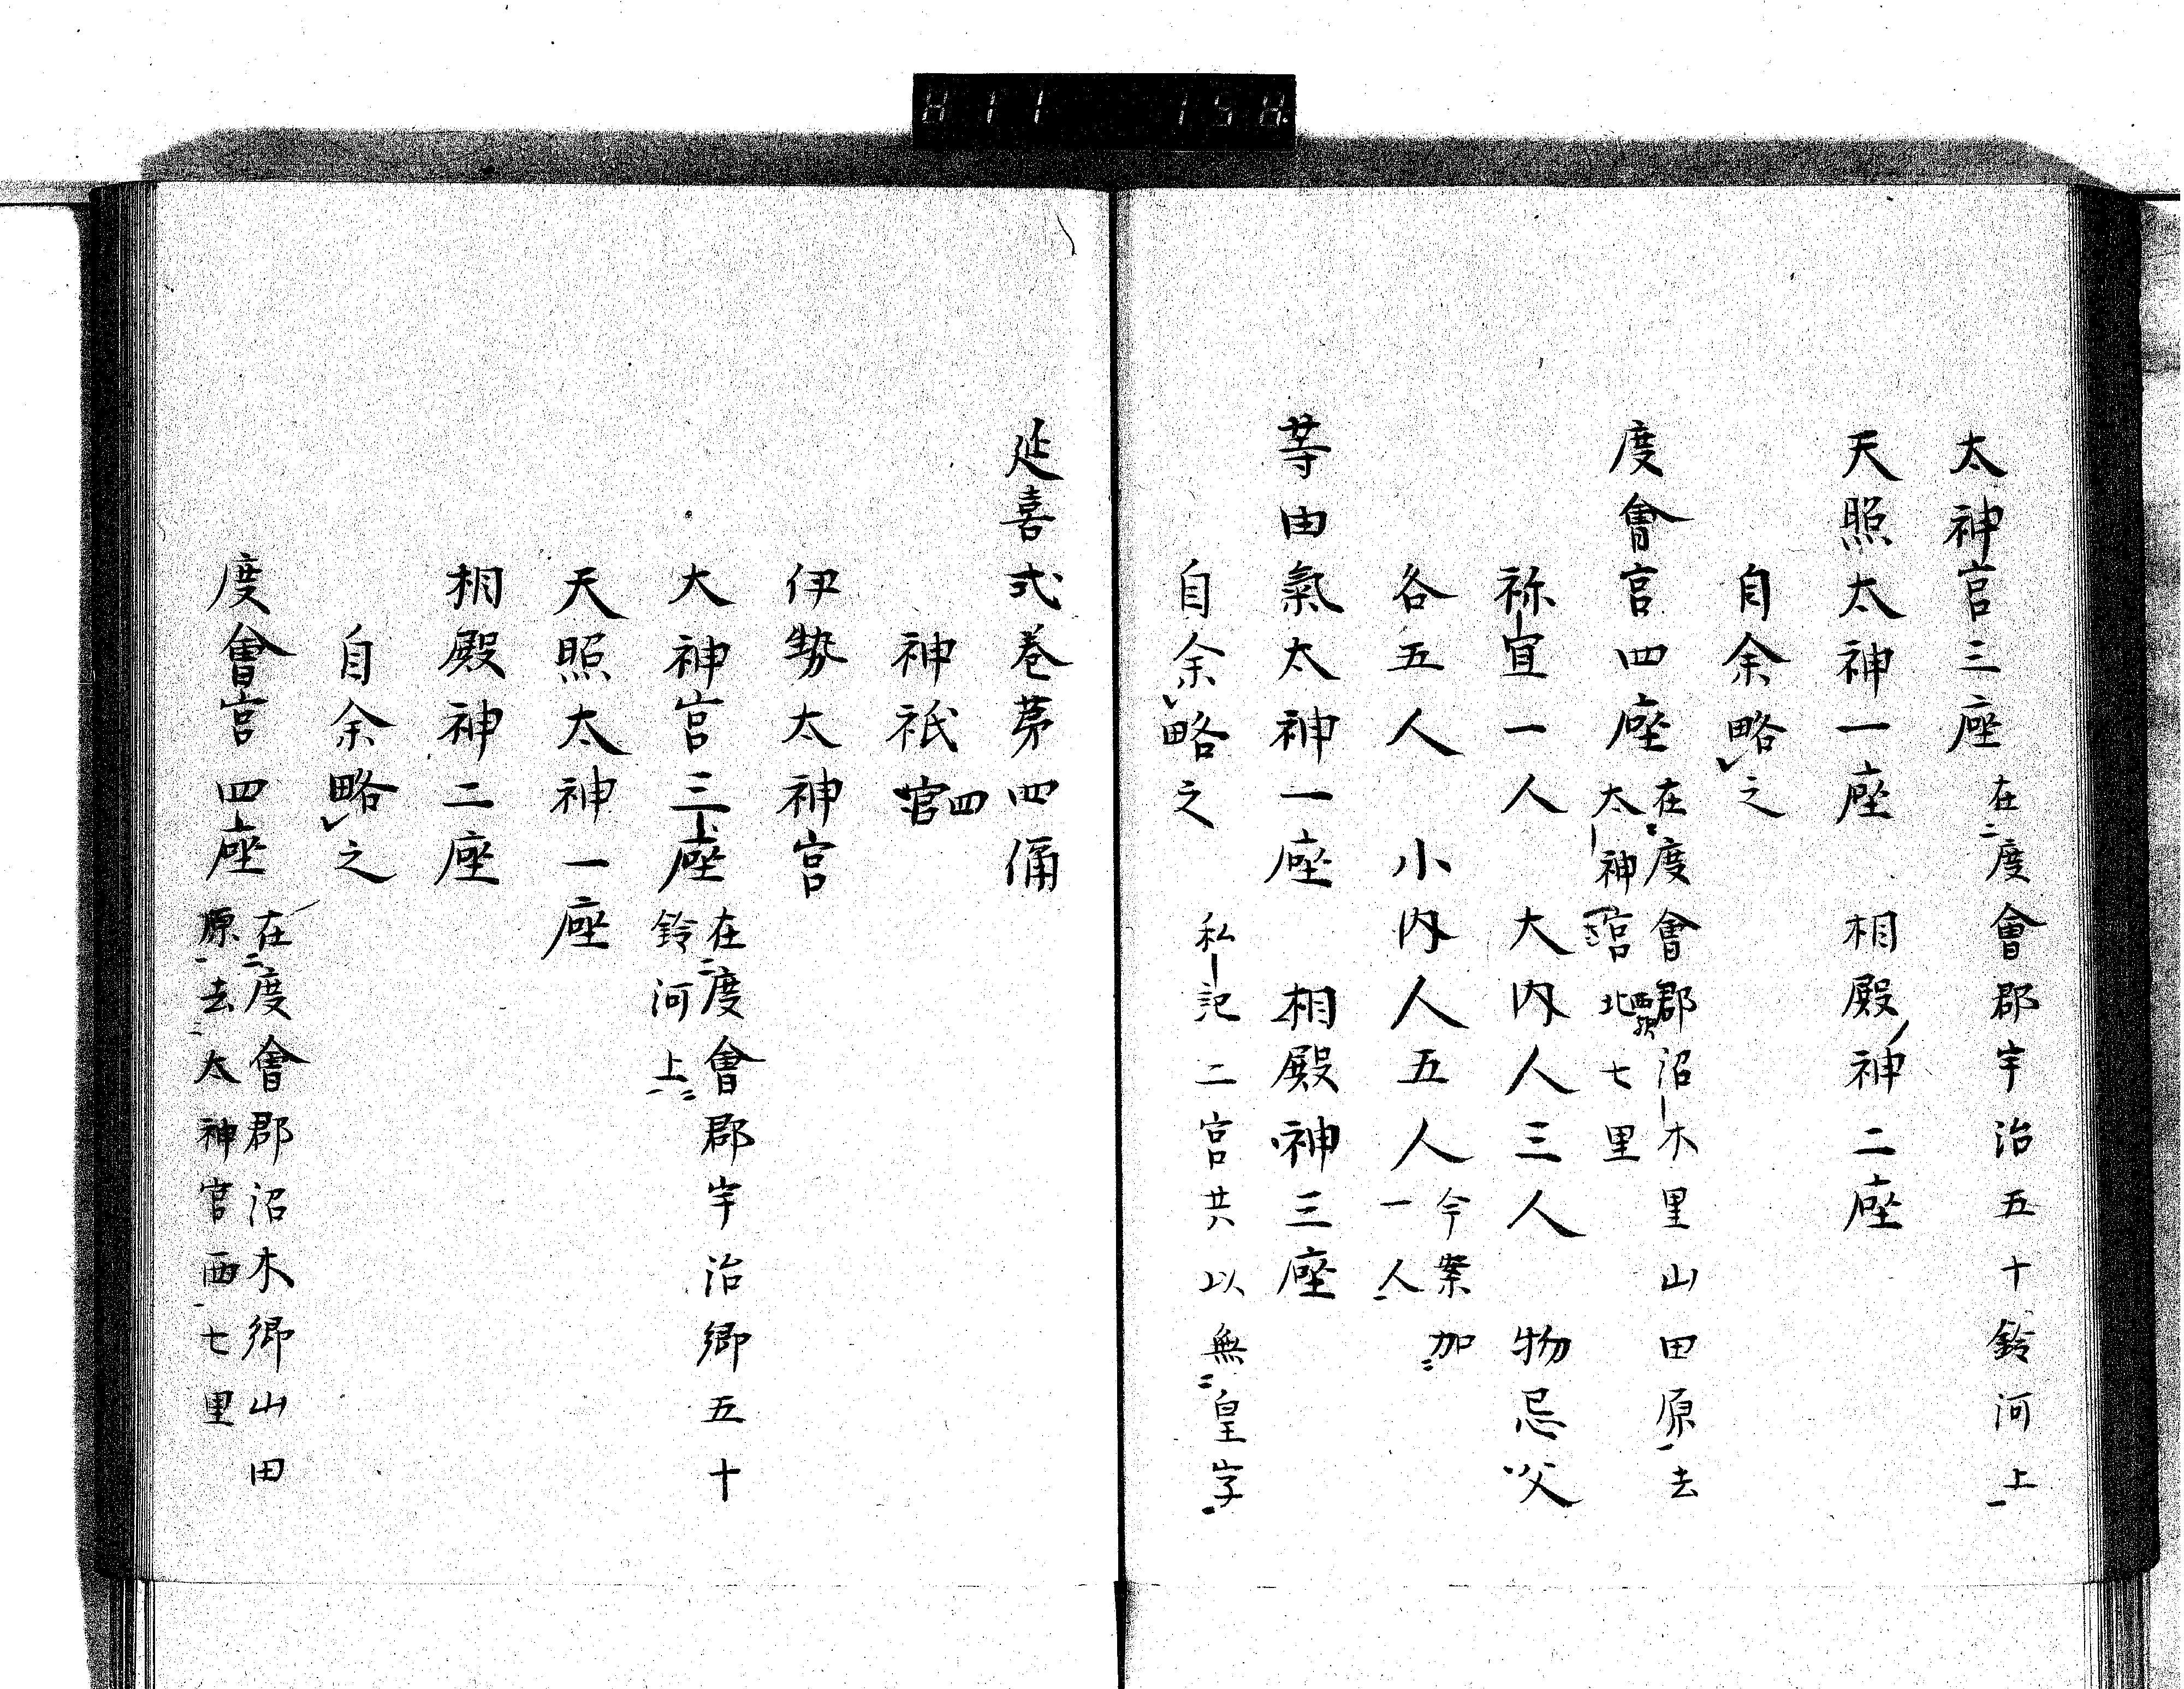 太神宮三座 在度會郡宇治五十鈴河上
天照太神一座 相殿神二座
自余略之
度會宮四座 在度會郡沼木里山田原去
太神宮北七里
祢宜一人 大内人三人 物忌父
各五人 小内人五人 今案加
一人
等由氣太神一座 相殿神三座
自余略之 私記二宮共以無皇字
延喜式巻苐四俑
神祇官四
伊勢太神宮
大神宮三座 在度會郡宇治鄉五十
鈴河上
天照太神一座
相殿神二座
自余略之
度會宮四座 在度會郡沼木鄉山田
原去太神宮西七里